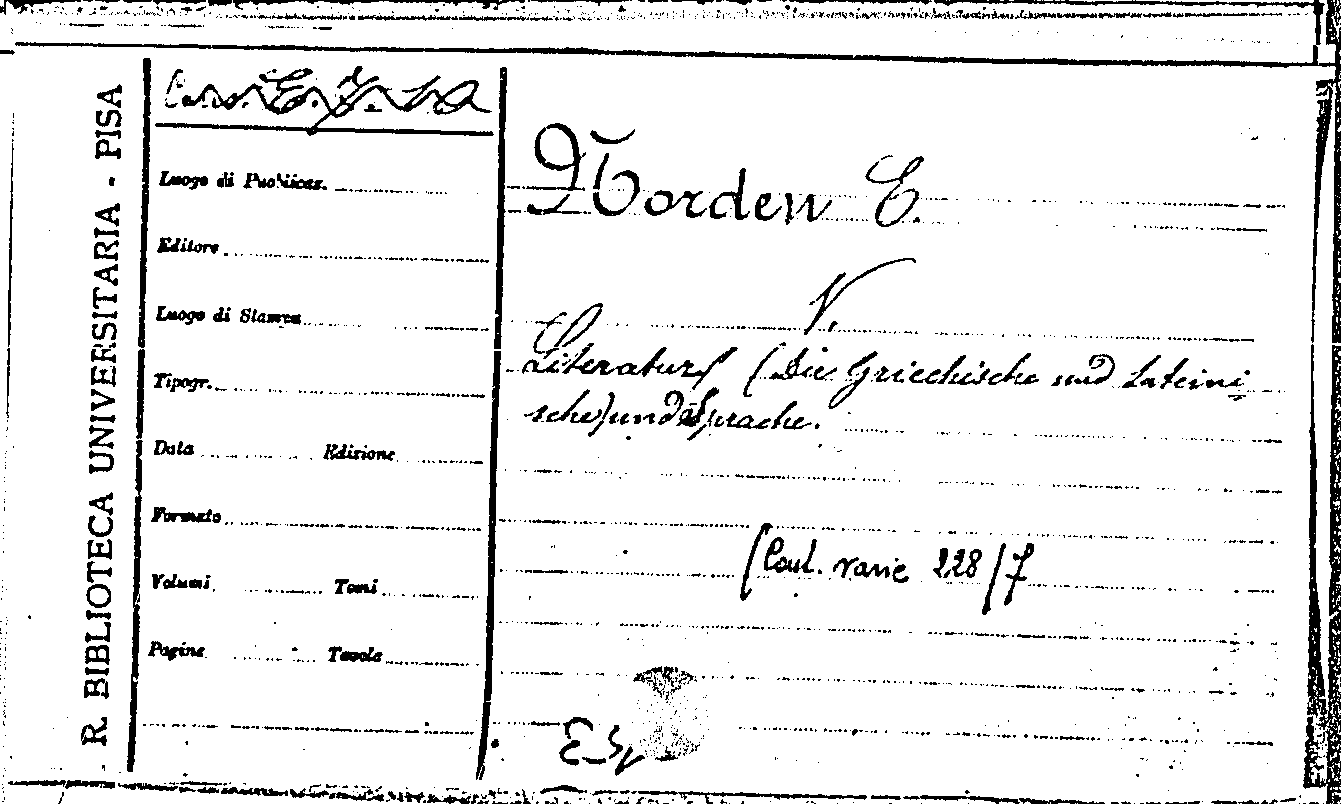 R. BIBLIOTECA UNIVERSITARIA - PISA
Luogo di Pubblicaz.
Editore
Luogo di Stampa
Tipogr.
Data Edizione
Formato
Volumi Tomi
Pagine Tavole
Norden E.
V.
Literatur (Die Griechische und Lateini
sche) und Sprache.
(Coul. varie 228/7